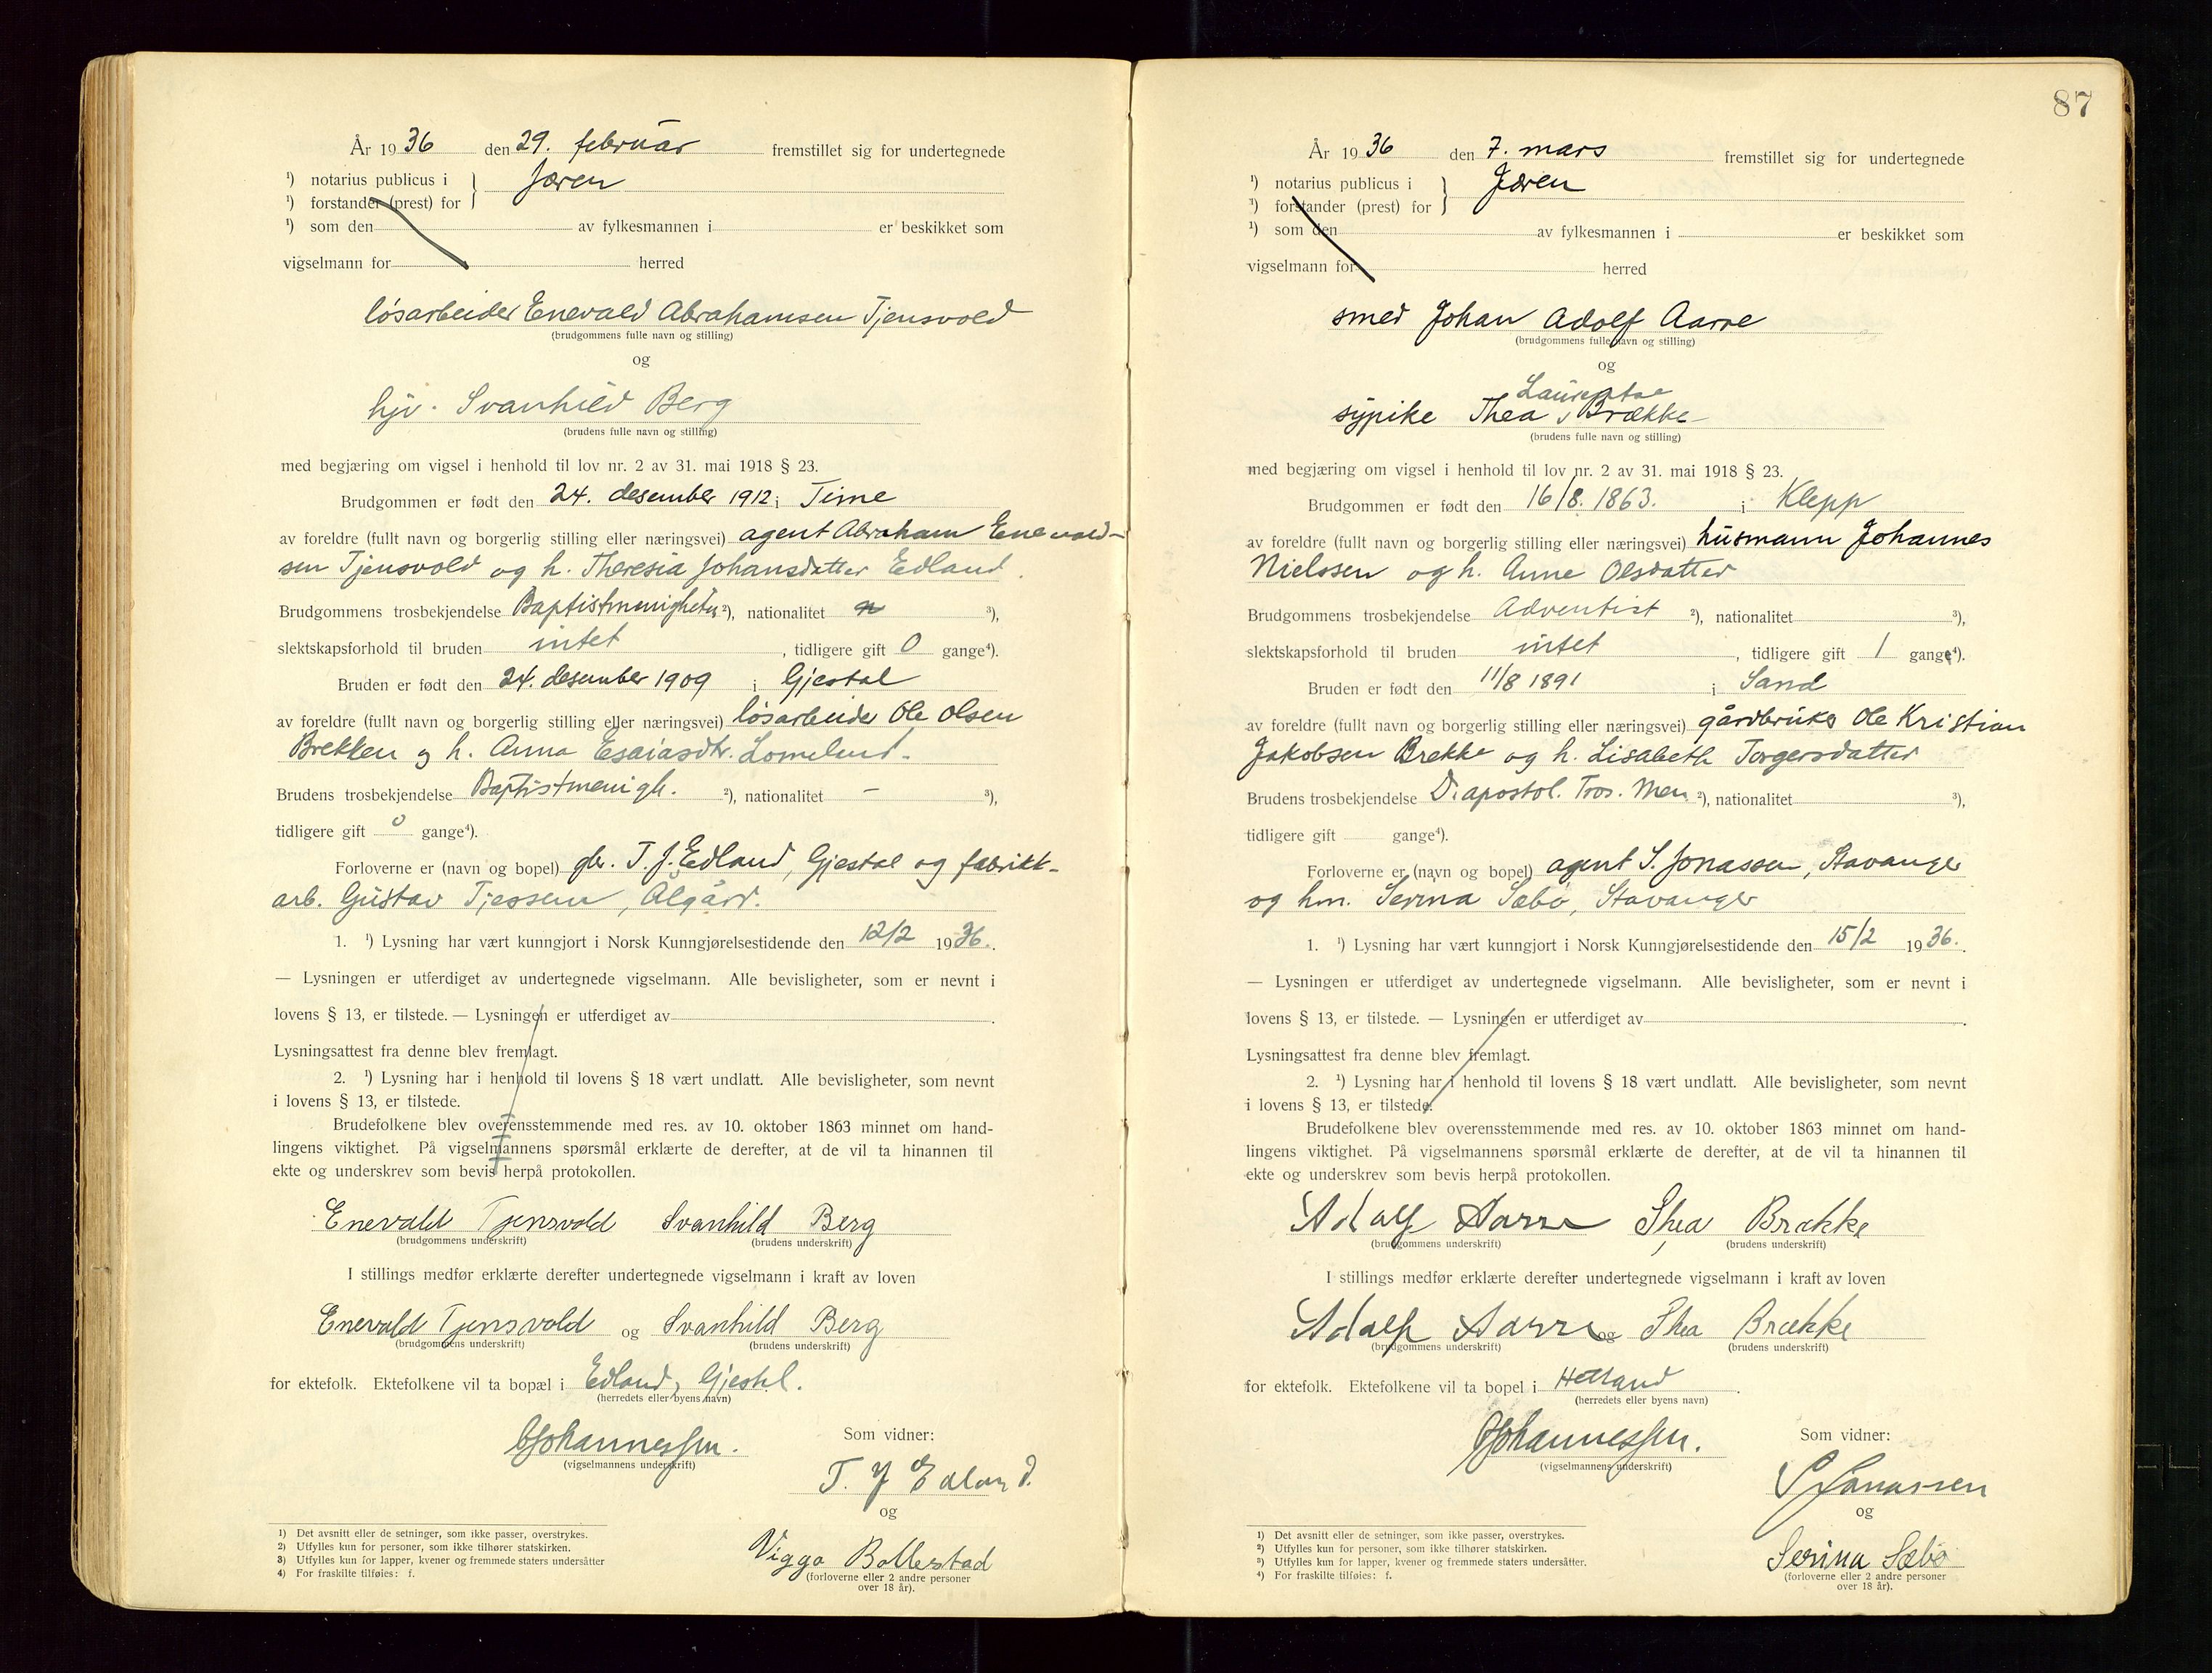 År 1936 den 29. februar fremstillet sig for undertegnede
¹) notarius publicus i } Jæren
¹) forstander (prest) for
¹) som den av fylkesmannen i er beskikket som
vigselmann for herred
løsarbeider Enevald Abrahamsen Tjensvold
(brudgommens fulle navn og stilling)
og
hjv. Svanhild Berg
(brudens fulle navn og stilling)
med begjæring om vigsel i henhold til lov nr. 2 av 31. mai 1918 § 23.
Brudgommen er født den 24. desember 1912 i Time
av foreldre (fullt navn og borgerlig stilling eller næringsvei) agent Abraham Enevold-
sen Tjensvold og h. Theresia Johansdatter Edland.
Brudgommens trosbekjendelse Baptistmenigheten ²), nationalitet ³),
slektskapsforhold til bruden intet, tidligere gift 0 gange⁴).
Bruden er født den 24. desember 1909 i Gjestal
av foreldre (fullt navn og borgerlig stilling eller næringsvei) løsarbeider Ole Olsen
Brekken og h. Anna Esaiasdtr. Lomelund.
Brudens trosbekjendelse Baptistmenigh. ²), nationalitet - ³),
tidligere gift 0 gange⁴).
Forloverne er (navn og bopel) gbr. T. J. Edland, Gjestal og fabrikk-
arb. Gustav Tjessem, Ålgård.
1. ¹) Lysning har vært kunngjort i Norsk Kunngjørelsestidende den 12/2 1936.
— Lysningen er utferdiget av undertegnede vigselmann. Alle bevisligheter, som er nevnt i
lovens § 13, er tilstede. — Lysningen er utferdiget av .
Lysningsattest fra denne blev fremlagt.
2. ¹) Lysning har i henhold til lovens § 18 vært undlatt. Alle bevisligheter, som nevnt
i lovens § 13, er tilstede.
Brudefolkene blev overensstemmende med res. av 10. oktober 1863 minnet om hand-
lingens viktighet. På vigselmannens spørsmål erklærte de derefter, at de vil ta hinannen til
ekte og underskrev som bevis herpå protokollen.
Enevald Tjensvold Svanhild Berg
(brudgommens underskrift) (brudens underskrift)
I stillings medfør erklærte derefter undertegnede vigselmann i kraft av loven
Enevald Tjensvold og Svanhild Berg
(brudgommens underskrift) (brudens underskrift)
for ektefolk. Ektefolkene vil ta bopæl i Edland, Gjestal.
(herredets eller byens navn)
Johannessen.
(vigselmannens underskrift)
Som vidner:
T. J Edland.
og
Viggo Bollestad
(forloverne eller 2 andre personer
over 18 år).
¹) Det avsnitt eller de setninger, som ikke passer, overstrykes.
2) Utfylles kun for personer, som ikke tilhører statskirken.
3) Utfylles kun for lapper, kvener og fremmede staters undersåtter
4) For fraskilte tilføies: f.
87
År 1936 den 7. mars fremstillet sig for undertegnede
¹) notarius publicus i } Jæren
¹) forstander (prest) for
¹) som den av fylkesmannen i er beskikket som
vigselmann for herred
smed Johan Adolf Aarre
(brudgommens fulle navn og stilling)
og
Laurentse
sypike Thea Brække
(brudens fulle navn og stilling)
med begjæring om vigsel i henhold til lov nr. 2 av 31. mai 1918 § 23.
Brudgommen er født den 16/8. 1863. i Klepp
av foreldre (fullt navn og borgerlig stilling eller næringsvei) husmann Johannes
Nielssen og h. Anne Olsdatter
Brudgommens trosbekjendelse Adventist ²), nationalitet ³),
slektskapsforhold til bruden intet, tidligere gift 1 gange⁴).
Bruden er født den 11/8 1891 i Sand
av foreldre (fullt navn og borgerlig stilling eller næringsvei) gårdbruker Ole Kristian
Jakobsen Brekke og h. Lisabeth Torgersdatter
Brudens trosbekjendelse D. apostol. Tros. Men ²), nationalitet ³),
tidligere gift gange⁴).
Forloverne er (navn og bopel) agent S. Jonassen, Stavanger
og hm. Serina Sæbø, Stavanger
1. ¹) Lysning har vært kunngjort i Norsk Kunngjørelsestidende den 15/2 1936.
— Lysningen er utferdiget av undertegnede vigselmann. Alle bevisligheter, som er nevnt i
lovens § 13, er tilstede. — Lysningen er utferdiget av .
Lysningsattest fra denne blev fremlagt.
2. ¹) Lysning har i henhold til lovens § 18 vært undlatt. Alle bevisligheter, som nevnt
i lovens § 13, er tilstede.
Brudefolkene blev overensstemmende med res. av 10. oktober 1863 minnet om hand-
lingens viktighet. På vigselmannens spørsmål erklærte de derefter, at de vil ta hinannen til
ekte og underskrev som bevis herpå protokollen.
Adolf Aarre Thea Brække
(brudgommens underskrift) (brudens underskrift)
I stillings medfør erklærte derefter undertegnede vigselmann i kraft av loven
Adolf Aarre og Thea Brække
(brudgommens underskrift) (brudens underskrift)
for ektefolk. Ektefolkene vil ta bopel i Hetland.
(herredets eller byens navn)
Johannessen.
(vigselmannens underskrift)
Som vidner:
S Jonassen
og
Serina Sæbø
(forloverne eller 2 andre personer
over 18 år).
¹) Det avsnitt eller de setninger, som ikke passer, overstrykes.
²) Utfylles kun for personer, som ikke tilhører statskirken.
³) Utfylles kun for lapper, kvener og fremmede staters undersåtter.
⁴) For fraskilte tilføies: f.